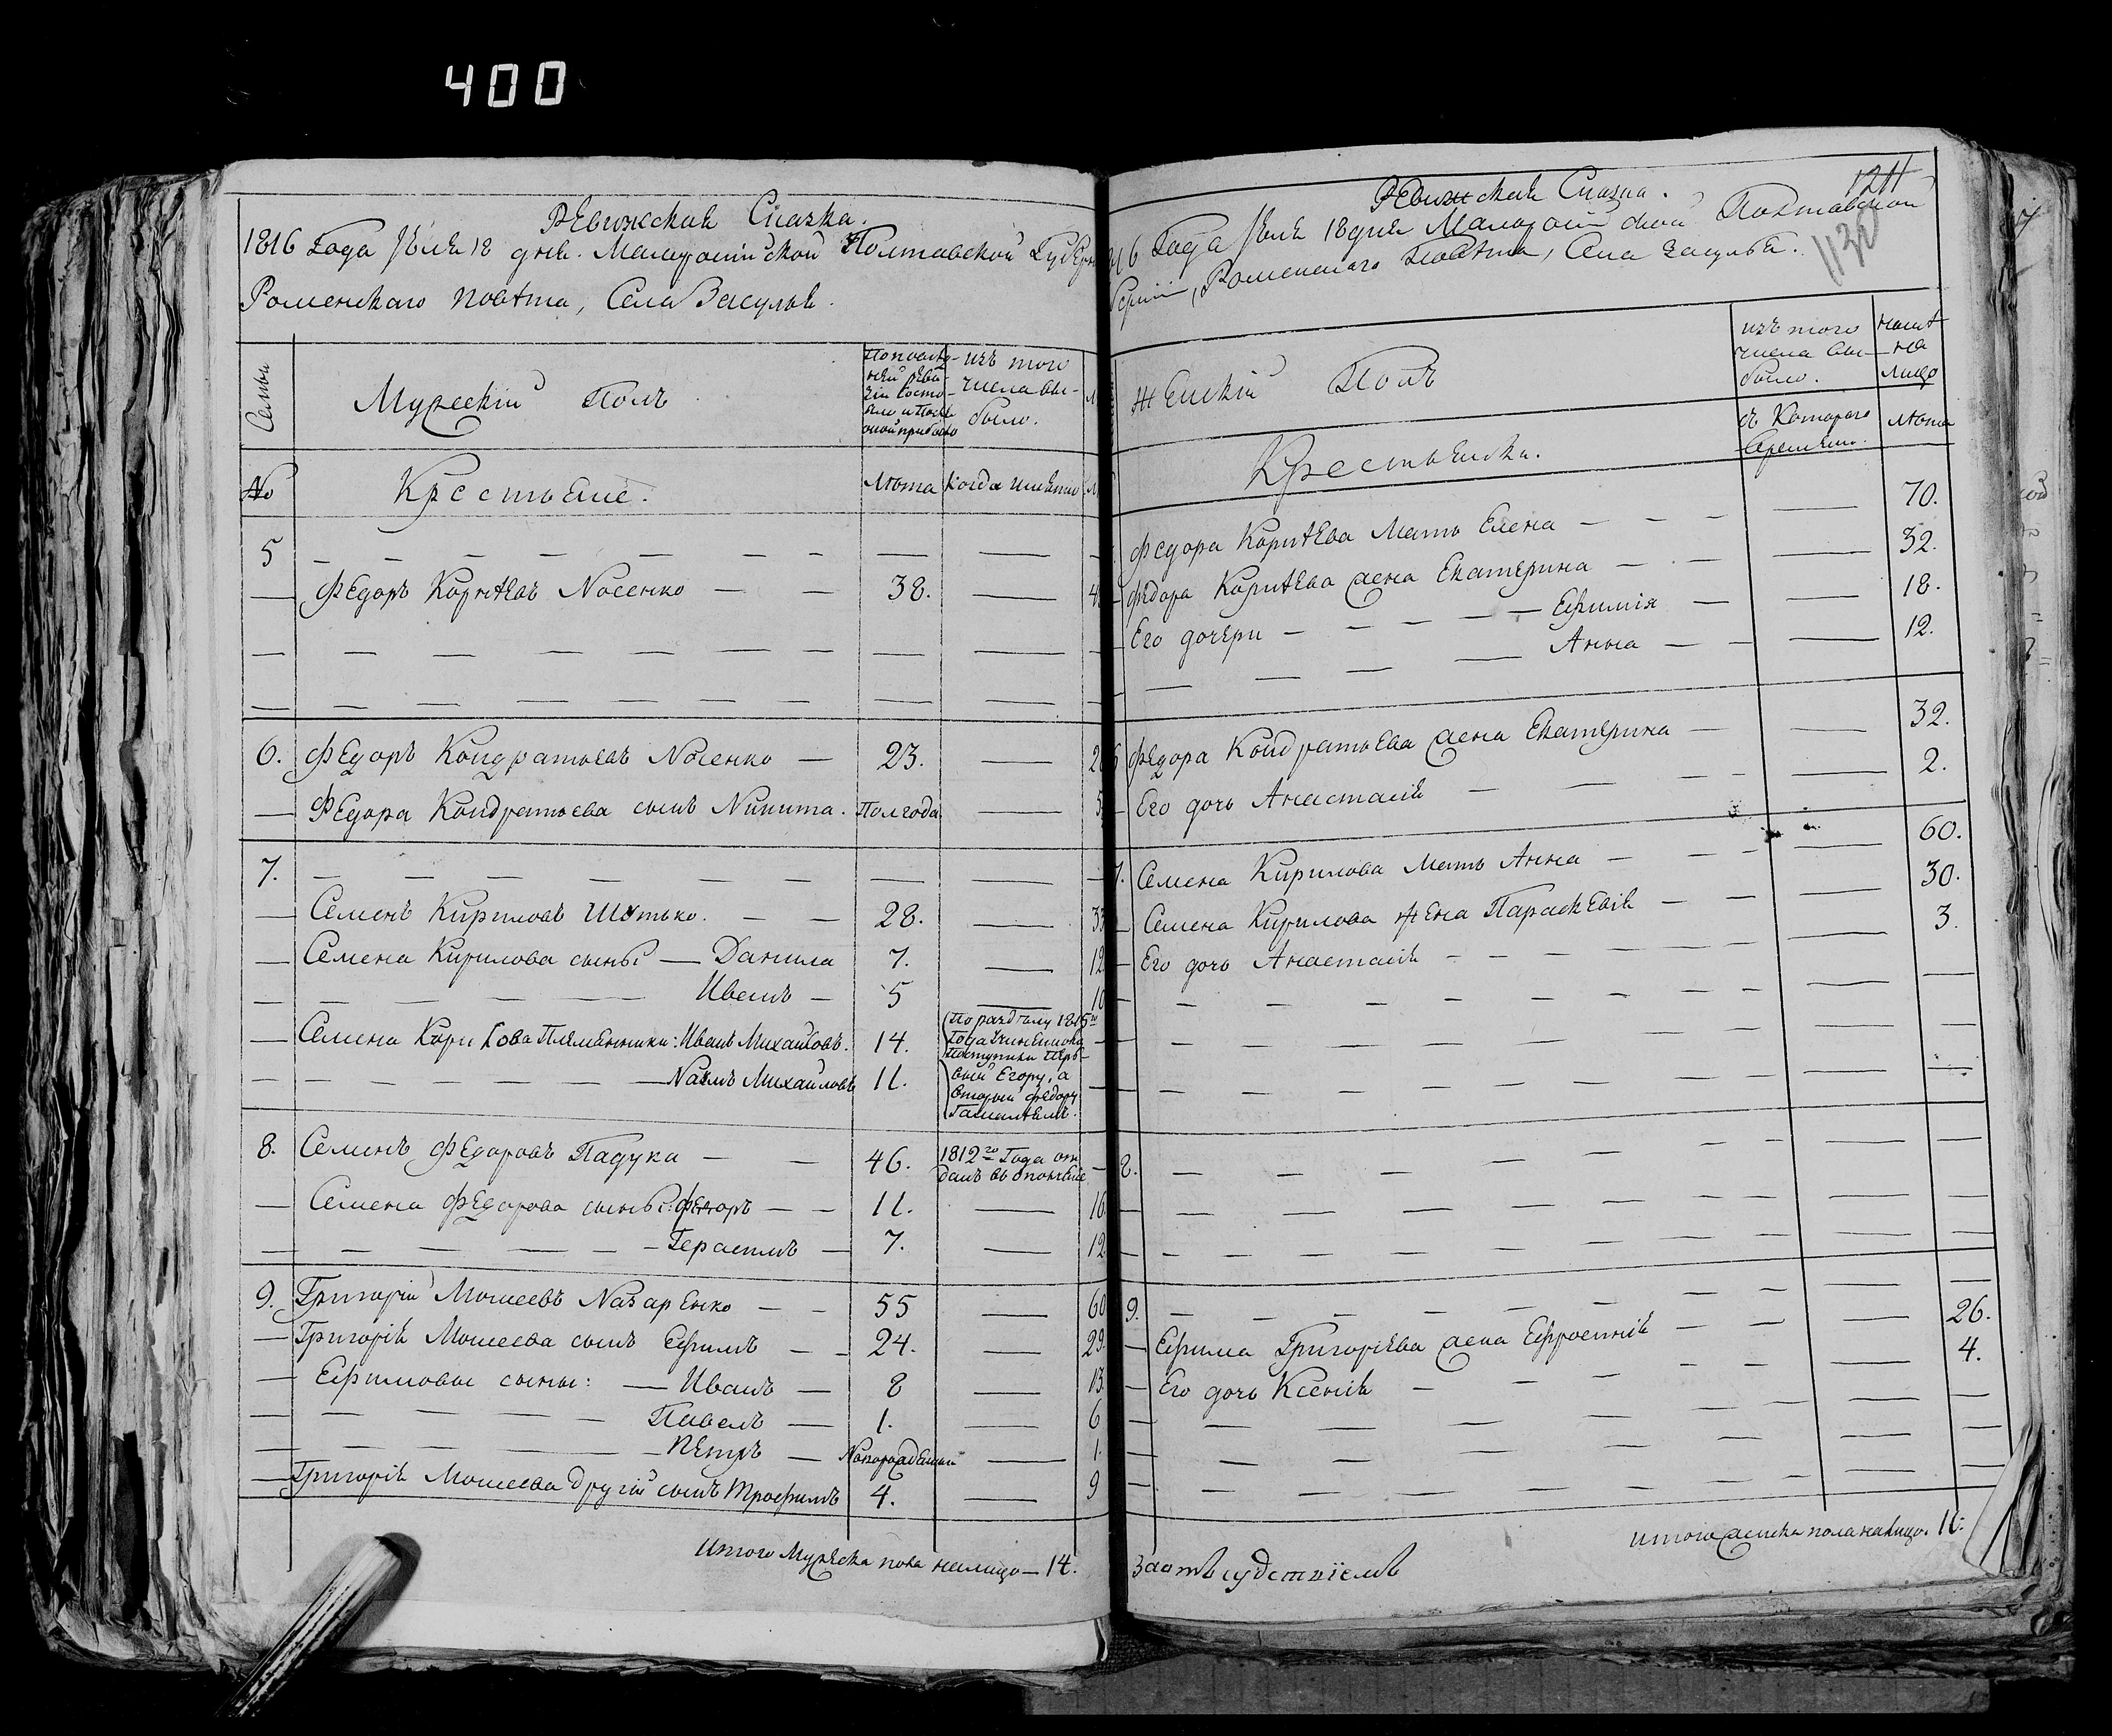 400
Ревижская Сказка.
1816 Года Июля 18 дня. Малоросийской Полтавской Губерн
Роменскаго повѣта, Села Засулья.
Семьи
Мужескій Полъ
По послѣд-
ней реви-
зіи состо-
яло и после
оной прибыло
изъ того
числа вы-
было.
№
Крестьяне.
Лѣта
когда именно
5
Федоръ Корнѣевъ Носенко 38.
6. Федоръ Кондратьевъ Носенко 23.
Федора Кондратьева сынъ Никита. Полгода
7.
Семенъ Кириловъ Шутько. 28.
Семена Кирилова сыны Данила 7. 12
Иванъ 5 10
Семена Кирилова Племянники: Иванъ Михайловъ. 14.
Наумъ Михайловъ 11.
По раздѣлу 1815го
Года
поступили пер-
вый Егору, а
вторый Федору
8. Семенъ Федоровъ Падука 46. 1812го Года от
данъ въ ополченіе
Семена Федорова сыны: Федоръ 11. 16
Герасимъ 7. 12
9. Григорій Мойсеевъ Назаренко 55 60
Григорія Мойсеева сынъ Ефимъ 24. 29.
Ефимовы сыны: Иванъ 8 13.
Павелъ 1. 6
Петръ Новорожденый 1.
Григорія Мойсеева другій сынъ Трофимъ 4. 9
Итого Мужеска пола налицо 14.
Ревижская Сказка.
1211
1132
816 Года Июля 18 дня Малоросийской Полтавской
берніи, Роменскаго Повѣта, Села Засулья.
Женскій Полъ
изъ того
числа вы-
было.
нынѣ
на
лицо
Крестьянки.
съ котораго
времени.
лѣта
Федора Корнѣева Мать Елена 70.
Федора Корнѣева жена Екатерина 32.
Его дочери Ефимія 18.
Анна 12.
6 Федора Кондратьева жена Екатерина 32.
Его дочь Анастасія 2.
7. Семена Кирилова Мать Анна 60.
Семена Кирилова жена Параскевія 30.
Его дочь Анастасія 3.
8.
9.
Ефима Григоріева жена Ефросинія 26.
Его дочь Ксенія 4.
Итого женска пола налицо. 11.
За отъсудствіемъ